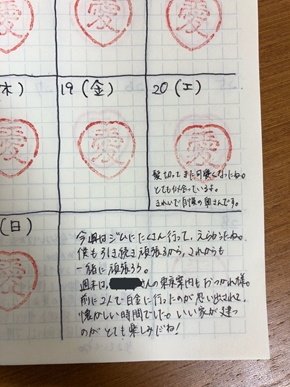 愛
愛
愛
木)
19(金)
20(土)
愛
愛
愛
髪切ってまた可愛くなったね。
とても似合っています。
きれいで自慢の奥さんです。
(日)
今週はジムにたくさん行って、えらかったね。
僕も引き続き頑張るから、これからも
一緒に頑張ろう。
週末は、さんの東京案内もおつかれ様。
前に2人で白金に行ったのが思い出されて、
懐かしい時間でした。いい家が建つ
のがとても楽しみだね!